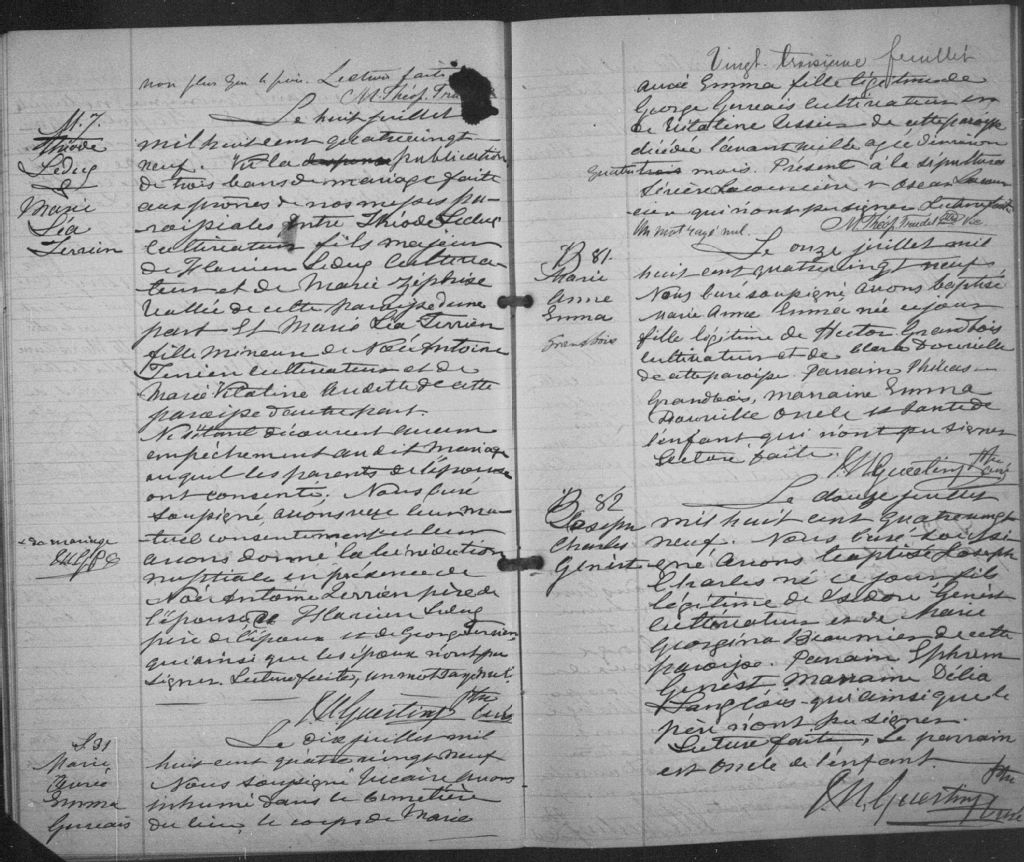 non plus que le père. Lecture faite
M. Théop. Trudel
M. 7.
Théode
Leduc
&
Marie
Léa
Terrien
Le huit juillet
mil huit cent quatrevingt
neuf. Vu la dispense publication
de trois bans de mariage faite
aux prônes de nos messes pa-
roissiales entre Théode Leduc
cultivateur fils majeur
de Flavien Leduc cultiva-
teur et de Marie Zéphise
Vallée de cette paroisse d'une
part Et Marie Léa Terrien
fille mineure de Noé Antoine
Terrien cultivateur et de
Marie Vitaline Audette de cette
paroisse d'autre part.
Ne s'étant découvert aucun
empêchement au dit mariage
auquel les parents de l'épouse
ont consenti. Nous curé
soussigné, avons reçu leur mu-
tuel consentement et leur
+ de mariage
avons donné la bénédiction
nuptiale en présence de
Noé Antoine Terrien père de
l'épouse, de Flavien Leduc
père de l'époux et de George Terrien
qui ainsi que les époux n'ont pu
signer. Lecture faite, un mot rayé nul.
J.N. Guertin Ptre
Curé
S. 31
Marie
Aurée
Emma
Gervais
Le dix juillet mil
huit cent quatre vingt neuf
Nous soussigné Vicaire avons
inhumé dans le cimetière
du lieu, le corps de Marie
Vingt troisième feuillet
Aurée Emma fille légitime de
George Gervais cultivateur et
de Vitaline Lessier de cette paroisse
décédée l'avant veille agée d'environ
quatre trois mois. Présent à la sépulture
Sévère Lacoursière & Oscar Lacour-
cière qui n'ont pu signer Lecture faite
Un mot rayé nul. M. Théop. Trudel Ptre Vic.
B 81.
Marie
Anne
Emma
Grandbois
Le onze juillet mil
huit cent quatrevingt neuf
Nous curé soussigné, avons baptisé
Marie Anne Emma née ce jour
fille légitime de Hector Grandbois
cultivateur et de Clara Douville
de cette paroisse. Parrain Philéas
Grandbois, marraine Emma
Douville Oncle et tante de
l'enfant qui n'ont pu signer
Lecture faite.
J.N. Guertin Ptre
curé
B 82
Joseph
Charles
Genest
Le douze juillet
mil huit cent quatrevingt
neuf. Nous curé soussi-
gné avons baptisé Joseph
Charles né ce jour fils
légitime de Isidore Genest
cultivateur et de Marie
Georgina Beaumier de cette
paroisse. Parrain Ephrem
Genest Marraine Délia
Langlois qui ainsi que le
père n'ont pu signer.
Lecture faite, Le parrain
est Oncle de l'enfant.
J.N. Guertin Ptre
Curé